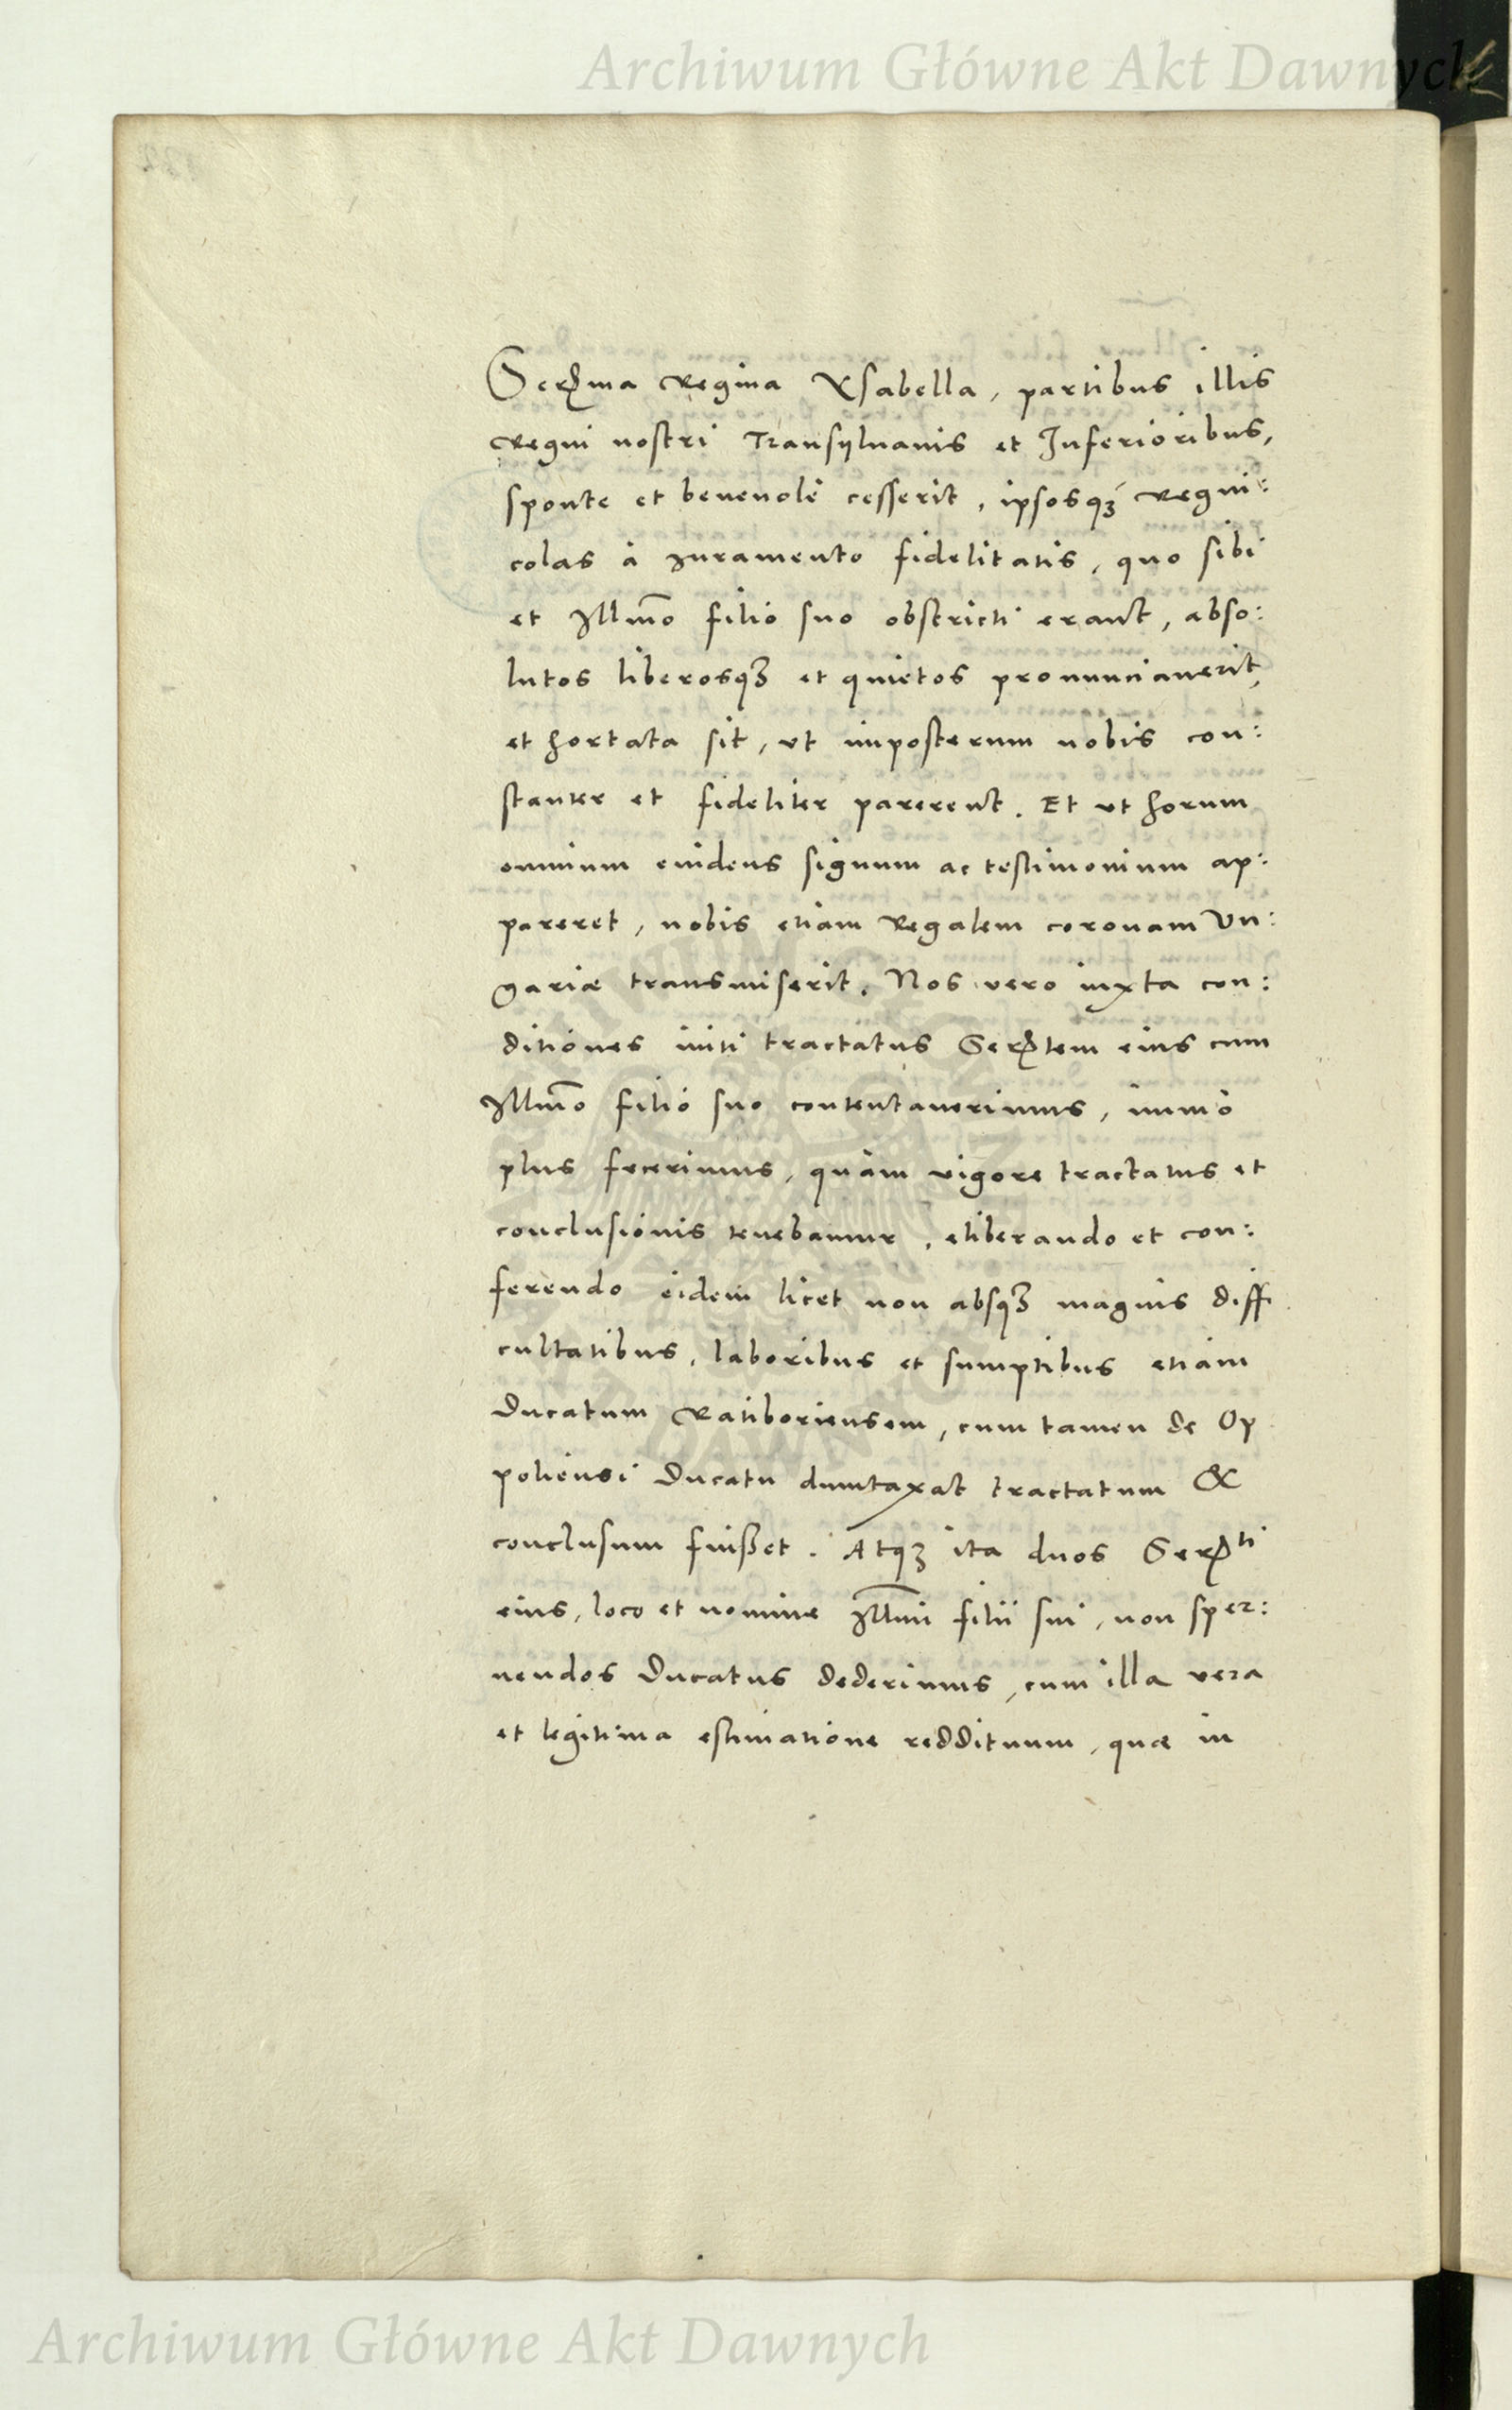 Archiwum Główne Akt Dawnych
Serma Regina Ysabella, partibus illis
Regni nostri Transylvanis et Inferioribus,
sponte et beneuole cesserit, ipsosqȝ Regni:
colas à Iuramento fidelitatis, quo sibi
et Illmo filio suo obstricti erant, abso:
lutos liberosqȝ et quietos pronunciauerit,
et hortata sit, vt imposterum nobis con:
stanter et fideliter parerent. Et vt horum
omnium euidens signum ac testimonium ap:
pareret, nobis etiam Regalem coronam Vn:
gariæ transmiserit. Nos vero iuxta con:
ditiones initi tractatus Sertem eius cum
Illmo filio suo contentauerimus, immò
plus fecerimus, quàm vigore tractatus et
conclusionis tenebamur, eliberando et con:
ferendo eidem licet non absqȝ magnis diffi
cultatibus, laboribus et sumptibus etiam
Ducatum Ratiboriensem, cum tamen de Op
poliensi Ducatu dumtaxat tractatum &
conclusum fuisset. Atqȝ ita duos Serti
eius, loco et nomine Illmi filii sui, non sper:
nendos Ducatus dederimus, cum illa vera
et legitima estimatione reddituum, quæ in
Archiwum Główne Akt Dawnych